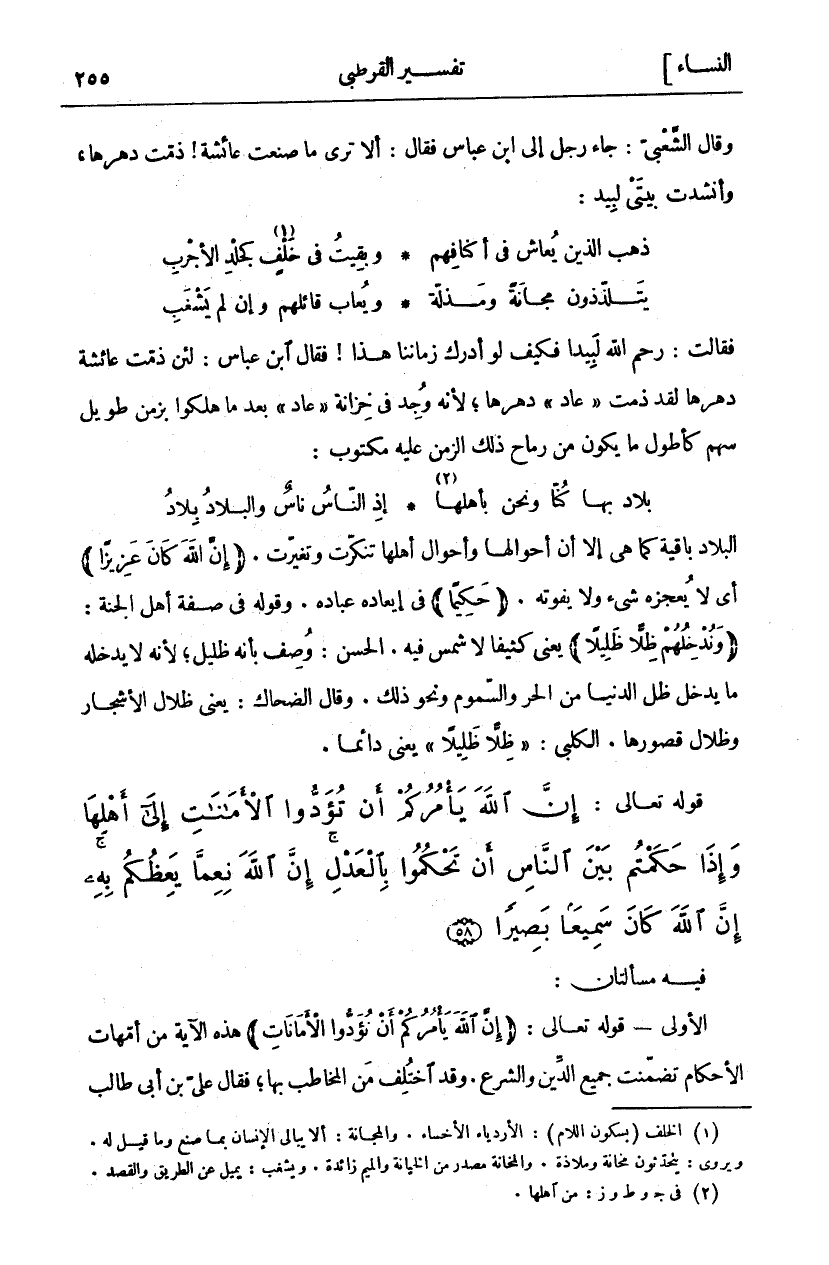 النساء ] تفسير القرطبى ٢٥٥
وقال الشَّعْبىّ : جاء رجل إلى ابن عباس فقال : ألا ترى ما صنعت عائشة! ذمّت دهرها،
وأنشدت بيتَىْ لبِيد :
ذهب الذين يُعاش فى أكنافِهم * وبقِيتُ فى خَلْفٍ (١) كجلْدِ الأجْربِ
يتَــلذّذون مجانَةً ومَــذلّة * ويُعاب قائلهم وإن لم يَشْغَبِ
فقالت : رحم الله لَبِيدا فكيف لو أدرك زماننا هــذا ! فقال ٱبن عباس : لئن ذمّت عائشة
دهرها لقد ذمت « عاد » دهرها ؛ لأنه وُجِد فى خِزانة «عاد» بعد ما هلكوا بزمن طويل
سهم كأطول ما يكون من رماح ذلك الزمن عليه مكتوب :
بلاد بهـا كُنّا ونحن بأهلهـا (٢) * إذِ النّاسُ ناسٌ والبــلادُ بِلادُ
البلاد باقية كما هى إلا أن أحوالهـا وأحوال أهلها تنكّرت وتغيّرت . ﴿ إِنَّ اللهَ كَانَ عَزِيزًا ﴾
أى لا يُعجزه شىء ولا يفوته . ﴿ حَكِيمًا ﴾ فى إيعاده عباده . وقوله فى صــفة أهل الجنة :
﴿ وَنُدْخِلُهُمْ ظِلًّا ظَلِيلًا ﴾ يعنى كثيفا لا شمس فيه . الحسن : وُصِف بأنه ظليل؛ لأنه لا يدخله
ما يدخل ظل الدنيــا من الحر والسَّموم ونحو ذلك . وقال الضحاك : يعنى ظلال الأشجــار
وظلال قصورها . الكلبى : « ظِلًّا ظَلِيلًا » يعنى دائمــا .
قوله تعـالى : إِنَّ ٱللَّهَ يَأْمُرُكُمْ أَن تُؤَدُّوا ٱلْأَمَـٰنَـٰتِ إِلَىٰٓ أَهْلِهَا
وَإِذَا حَكَمْتُم بَيْنَ ٱلنَّاسِ أَن تَحْكُمُوا بِٱلْعَدْلِ ۚ إِنَّ ٱللَّهَ نِعِمَّا يَعِظُكُم بِهِۦٓ ۗ
إِنَّ ٱللَّهَ كَانَ سَمِيعًۢا بَصِيرًا ٥٨
فيــه مسألتان :
الأولى — قوله تعــالى : ﴿ إِنَّ ٱللهَ يَأْمُرُكُمْ أَنْ تُؤَدُّوا الْأَمَانَاتِ ﴾ هذه الآية من أمّهات
الأحكام تضمّنت جميع الدِّين والشرع . وقد ٱختُلِف مَن المخاطب بها؛ فقال علىّ بن أبى طالب
(١) الخلف (بسكون اللام) : الأردياء الأخساء . والمجانة : ألا يبالى الإنسان بمـا صنع وما قيــل له .
ويروى : يتحدّثون مخانة وملاذة . والمخانة مصدر من الخيانة والميم زائدة . ويشغب : يميل عن الطريق والقصد .
(٢) فى جـ و ط و ز : من أهلها .